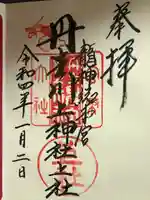 奉拝
龍神総本宮
丹生川上神社上社
令和四年一月二日